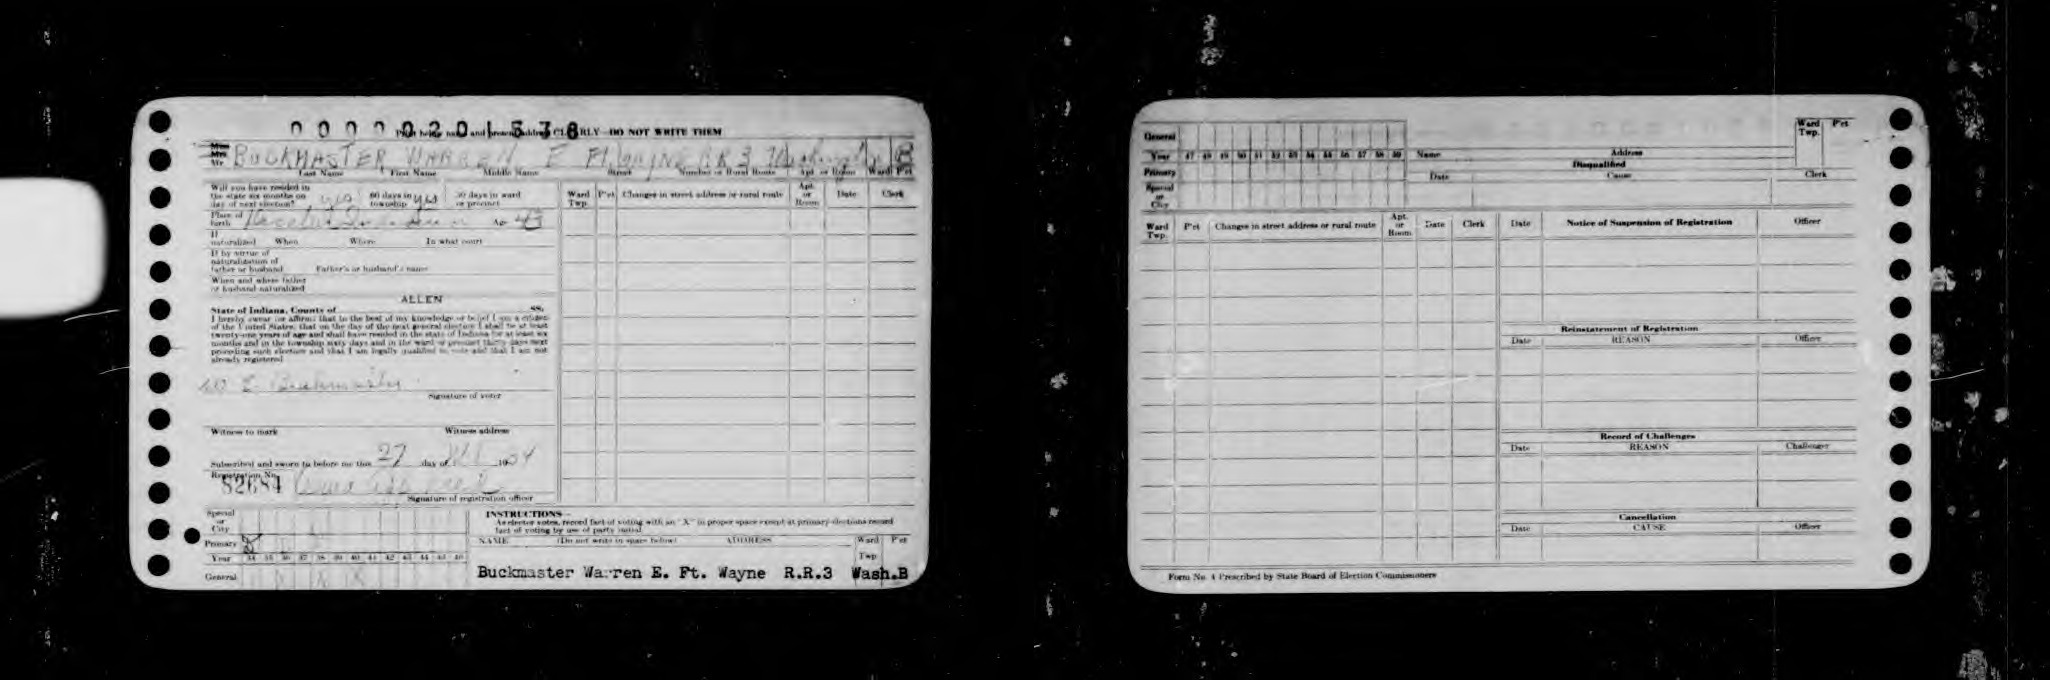 0000020 1538
Print being name and present address CLEARLY—DO NOT WRITE THEM
Miss
Mrs
Mr BUCKMASTER WARREN E Ft. WAYNE R R 3 Washington B
Last Name First Name Middle Name Street Number or Rural Route Apt or Room Ward P'ct
Will you have resided in
the state six months on yes 60 days in yes 30 days in ward
day of next election? township or precinct
Place of
birth Age 43
If
naturalized When Where In what court
If by virtue of
naturalization of
father or husband Father's or husband's name
When and where father
or husband naturalized
ALLEN
State of Indiana, County of SS:
I hereby swear (or affirm) that to the best of my knowledge or belief I am a citizen
of the United States, that on the day of the next general election I shall be at least
twenty-one years of age and shall have resided in the state of Indiana for at least six
months and in the township sixty days and in the ward or precinct thirty days next
preceding such election and that I am legally qualified to vote and that I am not
already registered
W E Buckmaster
Signature of voter
Witness to mark Witness address
Subscribed and sworn to before me this 27 day of 19
Registration No.
82684
Signature of registration officer
Ward Twp. P'ct Changes in street address or rural route Apt. or Room Date Clerk
Special
or
City
Primary
Year 34 35 36 37 38 39 40 41 42 43 44 45 46
General
INSTRUCTIONS—
As elector votes, record fact of voting with an "X" in proper space except at primary elections record
fact of voting by use of party initial.
NAME (Do not write in space below) ADDRESS Ward Twp P'ct
Buckmaster Warren E. Ft. Wayne R.R.3 Wash.B
General
Year 47 48 49 50 51 52 53 54 55 56 57 58 59
Primary
Special
or
City
Name Address Ward Twp. P'ct
Disqualified
Date Cause Clerk
Ward Twp. P'ct Changes in street address or rural route Apt. or Room Date Clerk
Date Notice of Suspension of Registration Officer
Reinstatement of Registration
Date REASON Officer
Record of Challenges
Date REASON Challenger
Cancellation
Date CAUSE Officer
Form No. 4 Prescribed by State Board of Election Commissioners